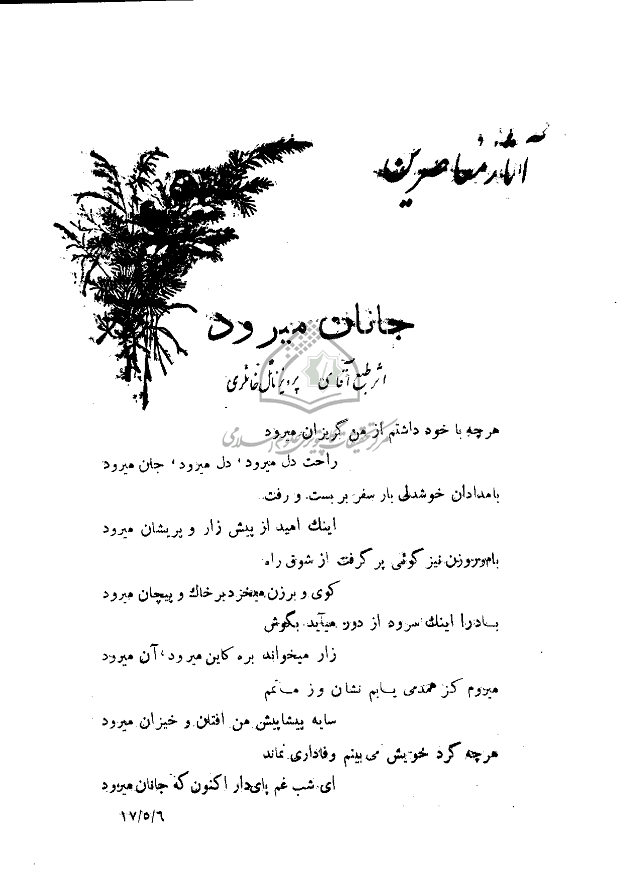 آثار معاصرین
جانان میرود
اثر طبع آقای پرویز ناتل خانلری
مرکز تحقیقات کامپیوتری علوم اسلامی
هرچه با خود داشتم از من گریزان میرود
راحت دل میرود، دل میرود، جان میرود
بامدادان خوشدلی بار سفر بر بست و رفت
اینك امید از پیش زار و پریشان میرود
بام و روزن نیز گوئی پر گرفت از شوق راه
کوی و برزن میخزد بر خاك و پیچان میرود
باد را اینك سرود از دور میآید بگوش
زار میخواند بره کاین میرود، آن میرود
میروم کز همدمی یابم نشان وز ماتم
سایه پیشاپیش من افتان و خیزان میرود
هرچه گرد خویش می بینم وفاداری نماند
ای شب غم پای‌دار اکنون که جانان میرود
۱۷/۵/۶